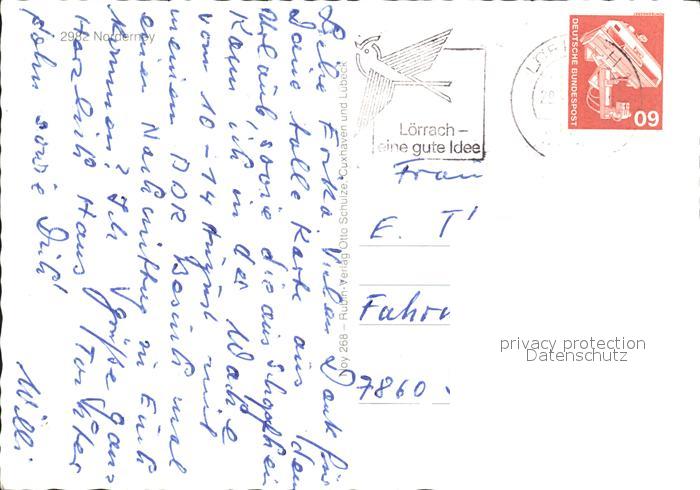 2982 Norderney
Liebe Erika Vielen Dank für
Deine tolle Karte aus dem
Urlaub, sowie die aus Schopfheim
Kann ich in der Woche
vom 10-14 August mit
meinem DDR Besuch mal
einen Nachmittag zu Euch
kommen? Ich grüße ganz
Herzlich Hans Tochter
Sohn sowie Dich
Willi
Noy 268 – Rubin-Verlag Otto Schulze, Cuxhaven und Lübeck
Lörrach –
eine gute Idee
DEUTSCHE BUNDESPOST
60
Frau
E. T
Fahrn
7860
privacy protection
Datenschutz